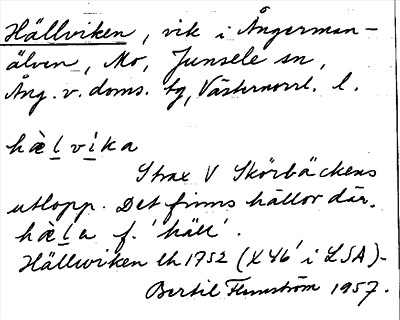 Hällviken, vik i Ångerman-
älven, Mo, Junsele sn,
Ång. v. doms. tg, Västernorrl. l.
hὲl̲ví̲ka
Strax V Skörbäckens
utlopp. Det finns hällor där.
hὲl̲a f. 'häll'.
Hällwiken lh 1752 (X46' i LSA).
Bertil Flemström 1957.